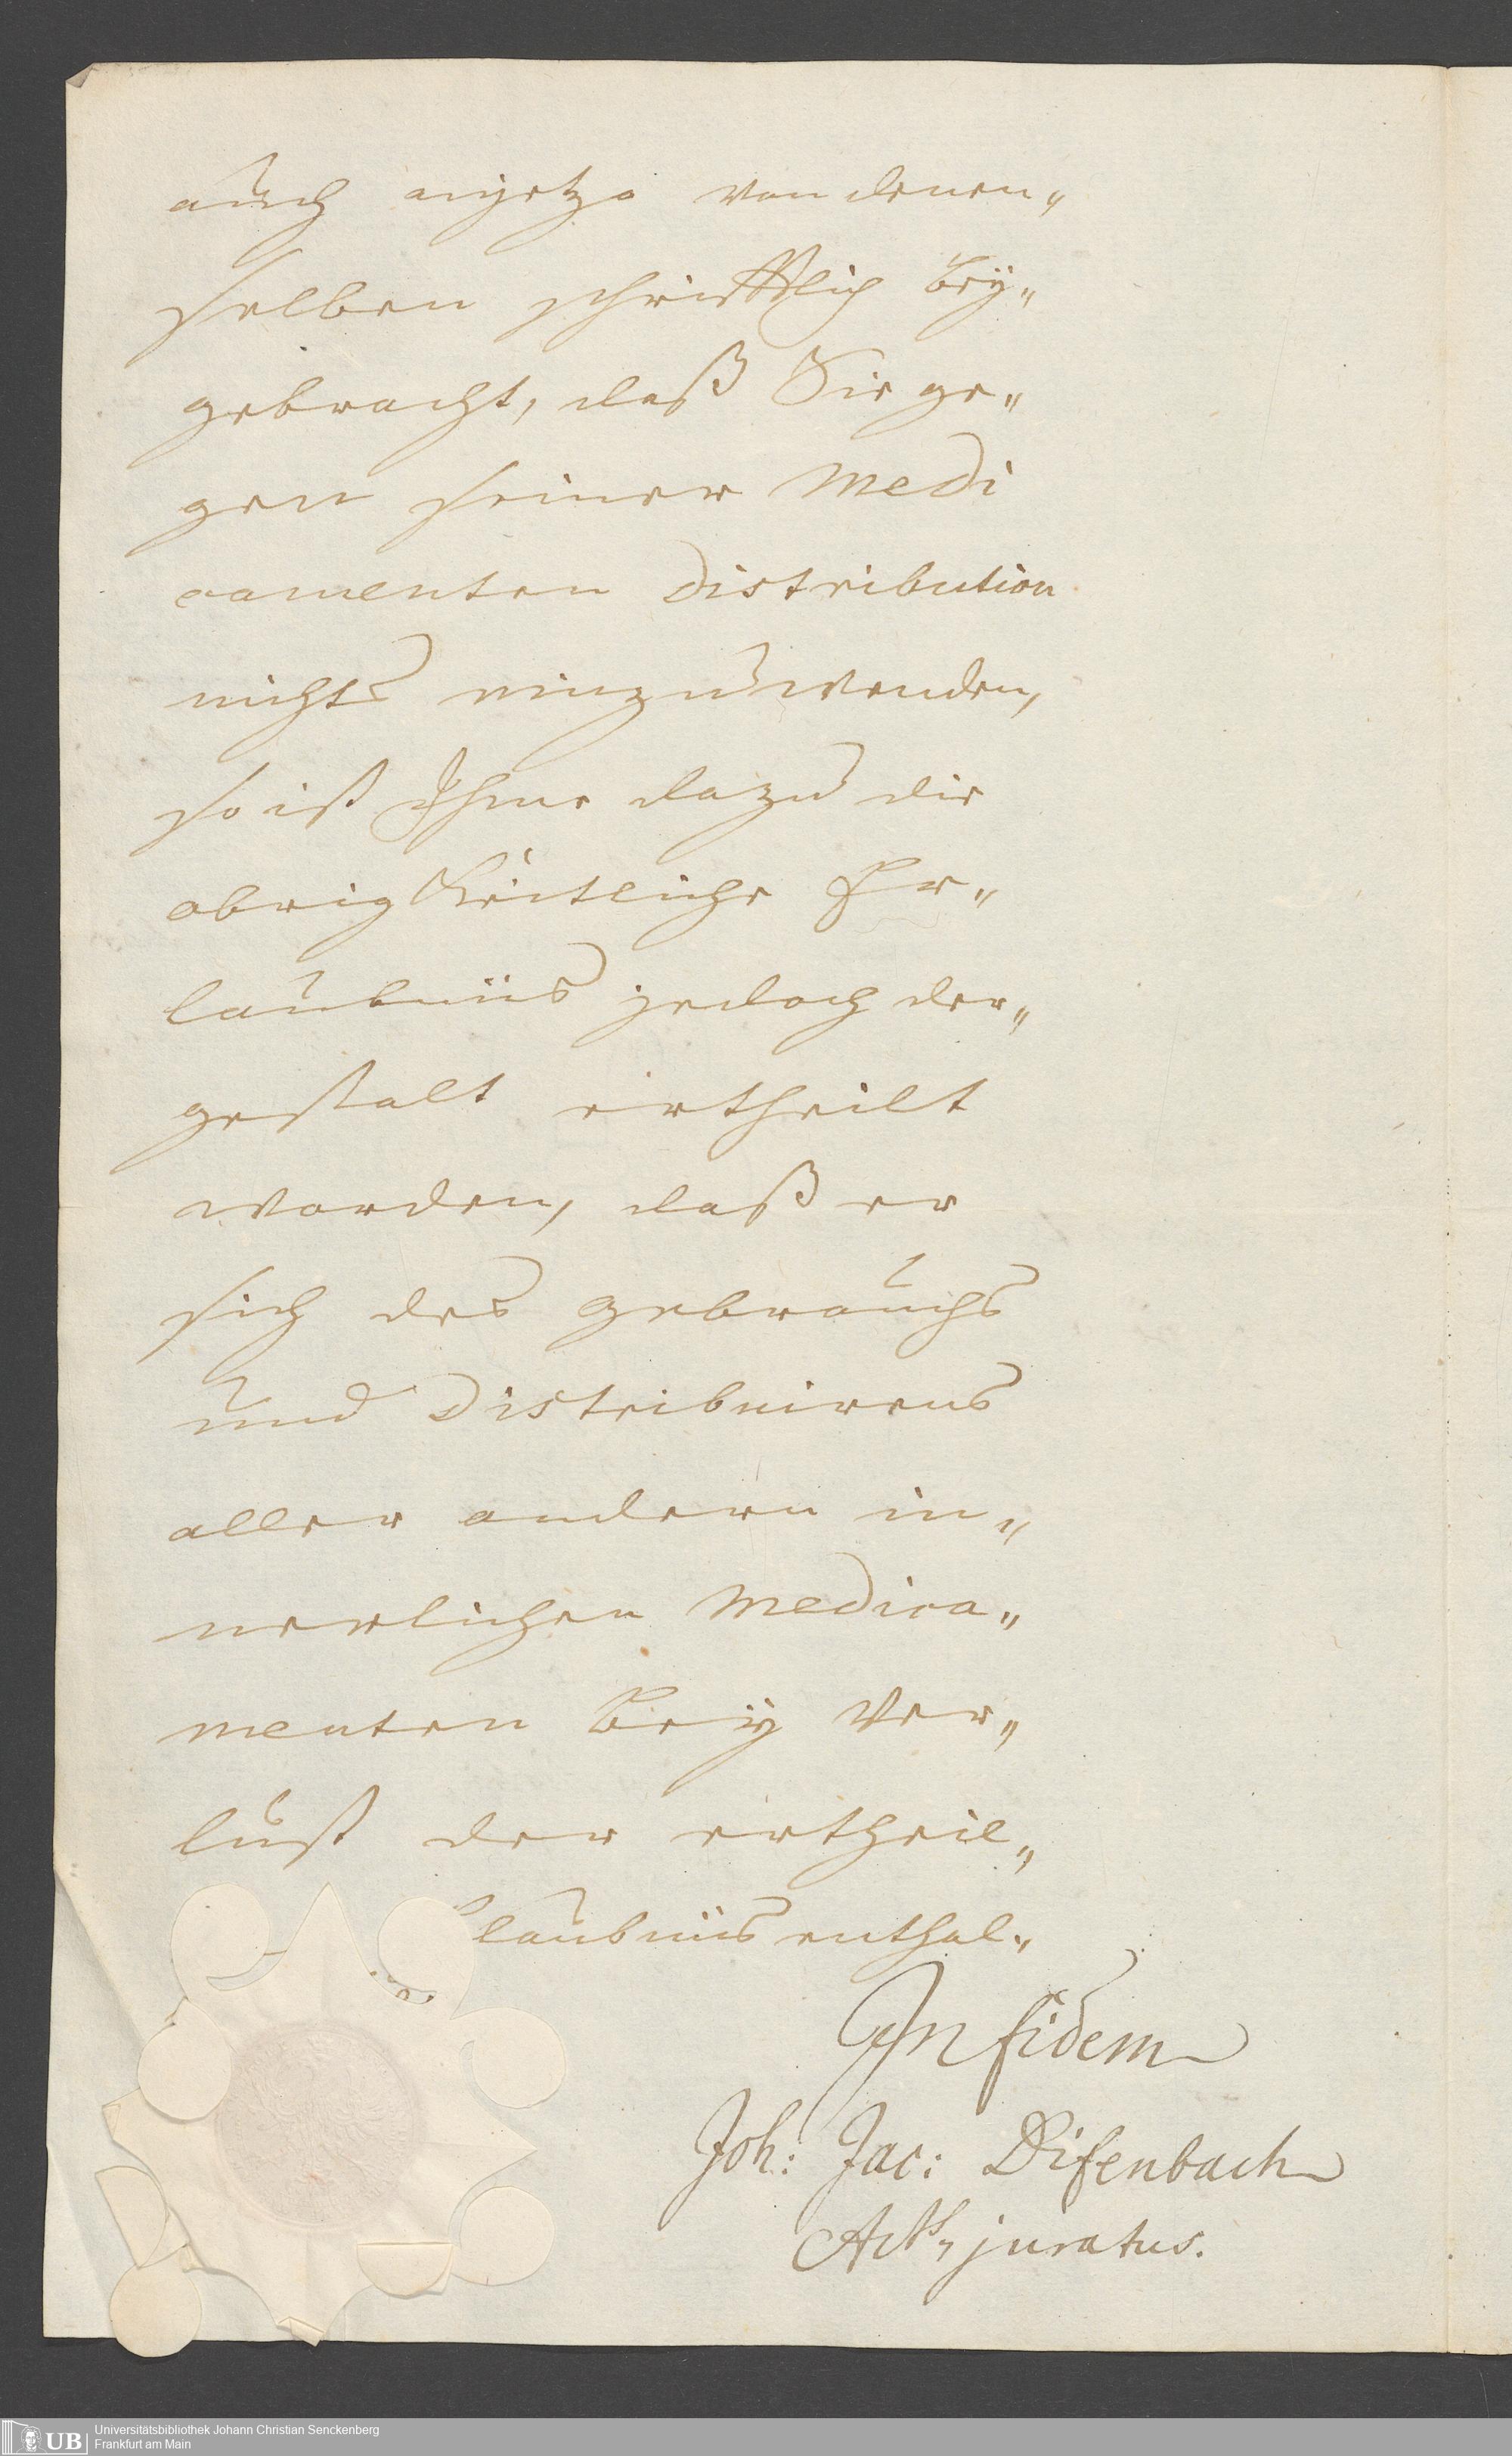 auch anjetzo von denen„
selben schrifftlich bey„
gebracht, daß Sie ge„
gen seiner Medi
camenten Distribution
nichts einzuwenden,
so ist Ihme dazu die
obrigkeitliche Er„
laubnüs jedoch der„
gestalt ertheilt
worden, daß er
sich des gebrauchs
und Distribuirens
aller andern in„
nerlichen Medica„
menten bey Ver„
lust der ertheil„
laubnüs enthal„
In fidem
Joh: Jac: Difenbach
Acts, juratus.
UB
Universitätsbibliothek Johann Christian Senckenberg
Frankfurt am Main